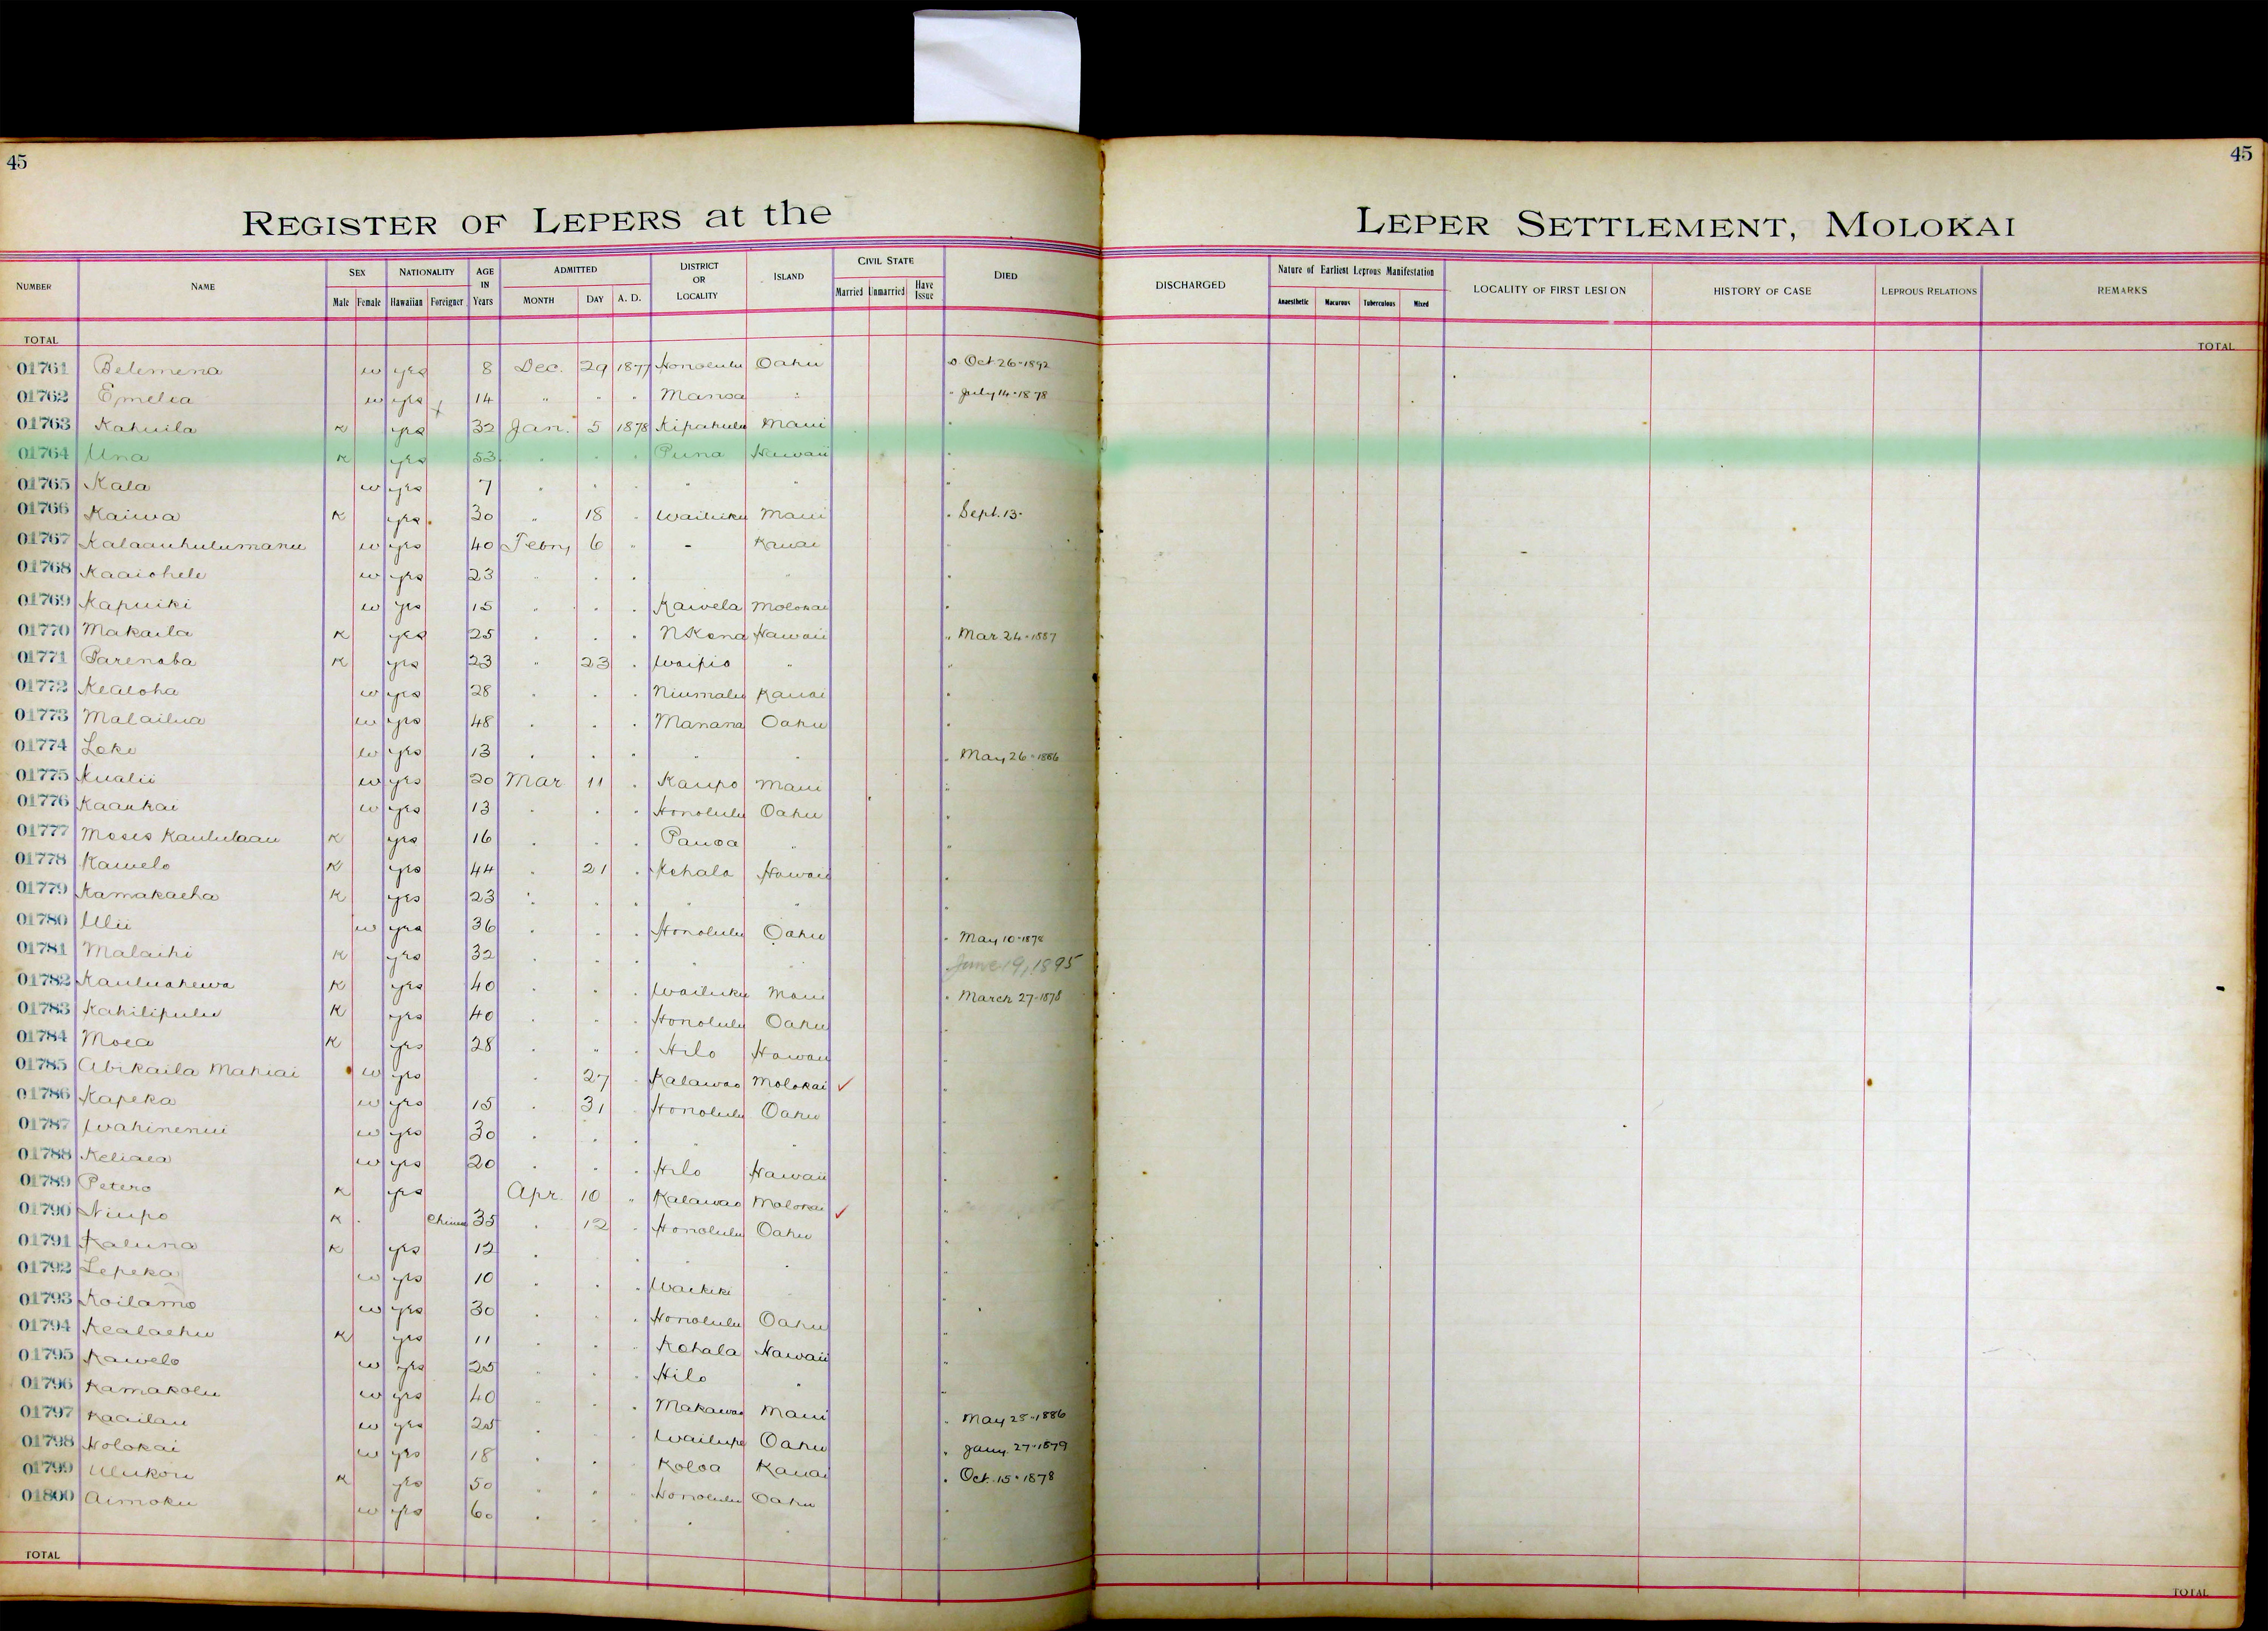 45
45
REGISTER OF LEPERS at the LEPER SETTLEMENT, MOLOKAI
NUMBER NAME SEX NATIONALITY AGE IN Years ADMITTED DISTRICT OR LOCALITY ISLAND CIVIL STATE DIED DISCHARGED Nature of Earliest Leprous Manifestation LOCALITY OF FIRST LESION HISTORY OF CASE LEPROUS RELATIONS REMARKS
Male Female Hawaiian Foreigner MONTH DAY A. D. Married Unmarried Have Issue Anaesthetic Macurous Tuberculous Mixed
TOTAL TOTAL
01761 Belemena w yes 8 Dec. 29 1877 Honolulu Oahu D. Oct 26-1892
01762 Emelia w yes 14 " " " Manoa " " July 14-1878
01763 Kahuila K yes 32 Jan. 5 1878 Kipahulu Maui "
01764 Una K yes 53 " " " Puna Hawaii "
01765 Kala w yes 7 " " " " " "
01766 Kaiwa K yes 30 " 18 " Wailuku Maui " Sept. 13-
01767 Kalaauhulumanu w yes 40 Febry 6 " - Kauai "
01768 Kaaiohele w yes 23 " " " " "
01769 Kapuiki w yes 15 " " " Kawela Molokai "
01770 Makaila K yes 25 " " " N Kona Hawaii " Mar. 24-1887
01771 Parenaba K yes 23 " 23 " Waipio " "
01772 Kealoha w yes 28 " " " Niumalu Kauai "
01773 Malailua w yes 48 " " " Manana Oahu "
01774 Loke w yes 13 " " " " " " May 26-1886
01775 Kualii w yes 20 Mar 11 " Kaupo Maui "
01776 Kaaukai w yes 13 " " " Honolulu Oahu "
01777 Moses Kaululaau K yes 16 " " " Pauoa " "
01778 Kawelo K yes 44 " 21 " Kohala Hawaii "
01779 Kamakaeha K yes 23 " " " " " "
01780 Ulii w yes 36 " " " Honolulu Oahu " May 10-1878
01781 Malaihi K yes 32 " " " " " June 19, 1895
01782 Kauluahewa K yes 40 " " " Wailuku Maui " March 27-1878
01783 Kahilipulu K yes 40 " " " Honolulu Oahu "
01784 Moea K yes 28 " " " Hilo Hawaii "
01785 Abikaila Mahiai w yes " 27 " Kalawao Molokai ✓ "
01786 Kapeka w yes 15 " 31 " Honolulu Oahu "
01787 Wahinenui w yes 30 " " " " " "
01788 Keliaea w yes 20 " " " Hilo Hawaii "
01789 Petero K yes Apr. 10 " Kalawao Molokai ✓ "
01790 Niupo K Chinese 35 " 12 " Honolulu Oahu "
01791 Kaluna K yes 12 " " " " " "
01792 Lepeka w yes 10 " " " Waikiki " "
01793 Koilamo w yes 30 " " " Honolulu Oahu "
01794 Kealaehu K yes 11 " " " Kohala Hawaii "
01795 Kawelo w yes 25 " " " Hilo " "
01796 Kamakolu w yes 40 " " " Makawao Maui "
01797 Kaailau w yes 25 " " " Wailupe Oahu " May 25-1886
01798 Holokai w yes 18 " " " Koloa Kauai " Jany. 27-1879
01799 Ulukou K yes 50 " " " Honolulu Oahu " Oct. 15-1878
01800 Aimoku w yes 60 " " " " " "
TOTAL TOTAL